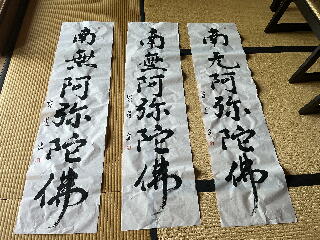 南無阿弥陀佛
南無阿弥陀佛
南无阿弥陀佛